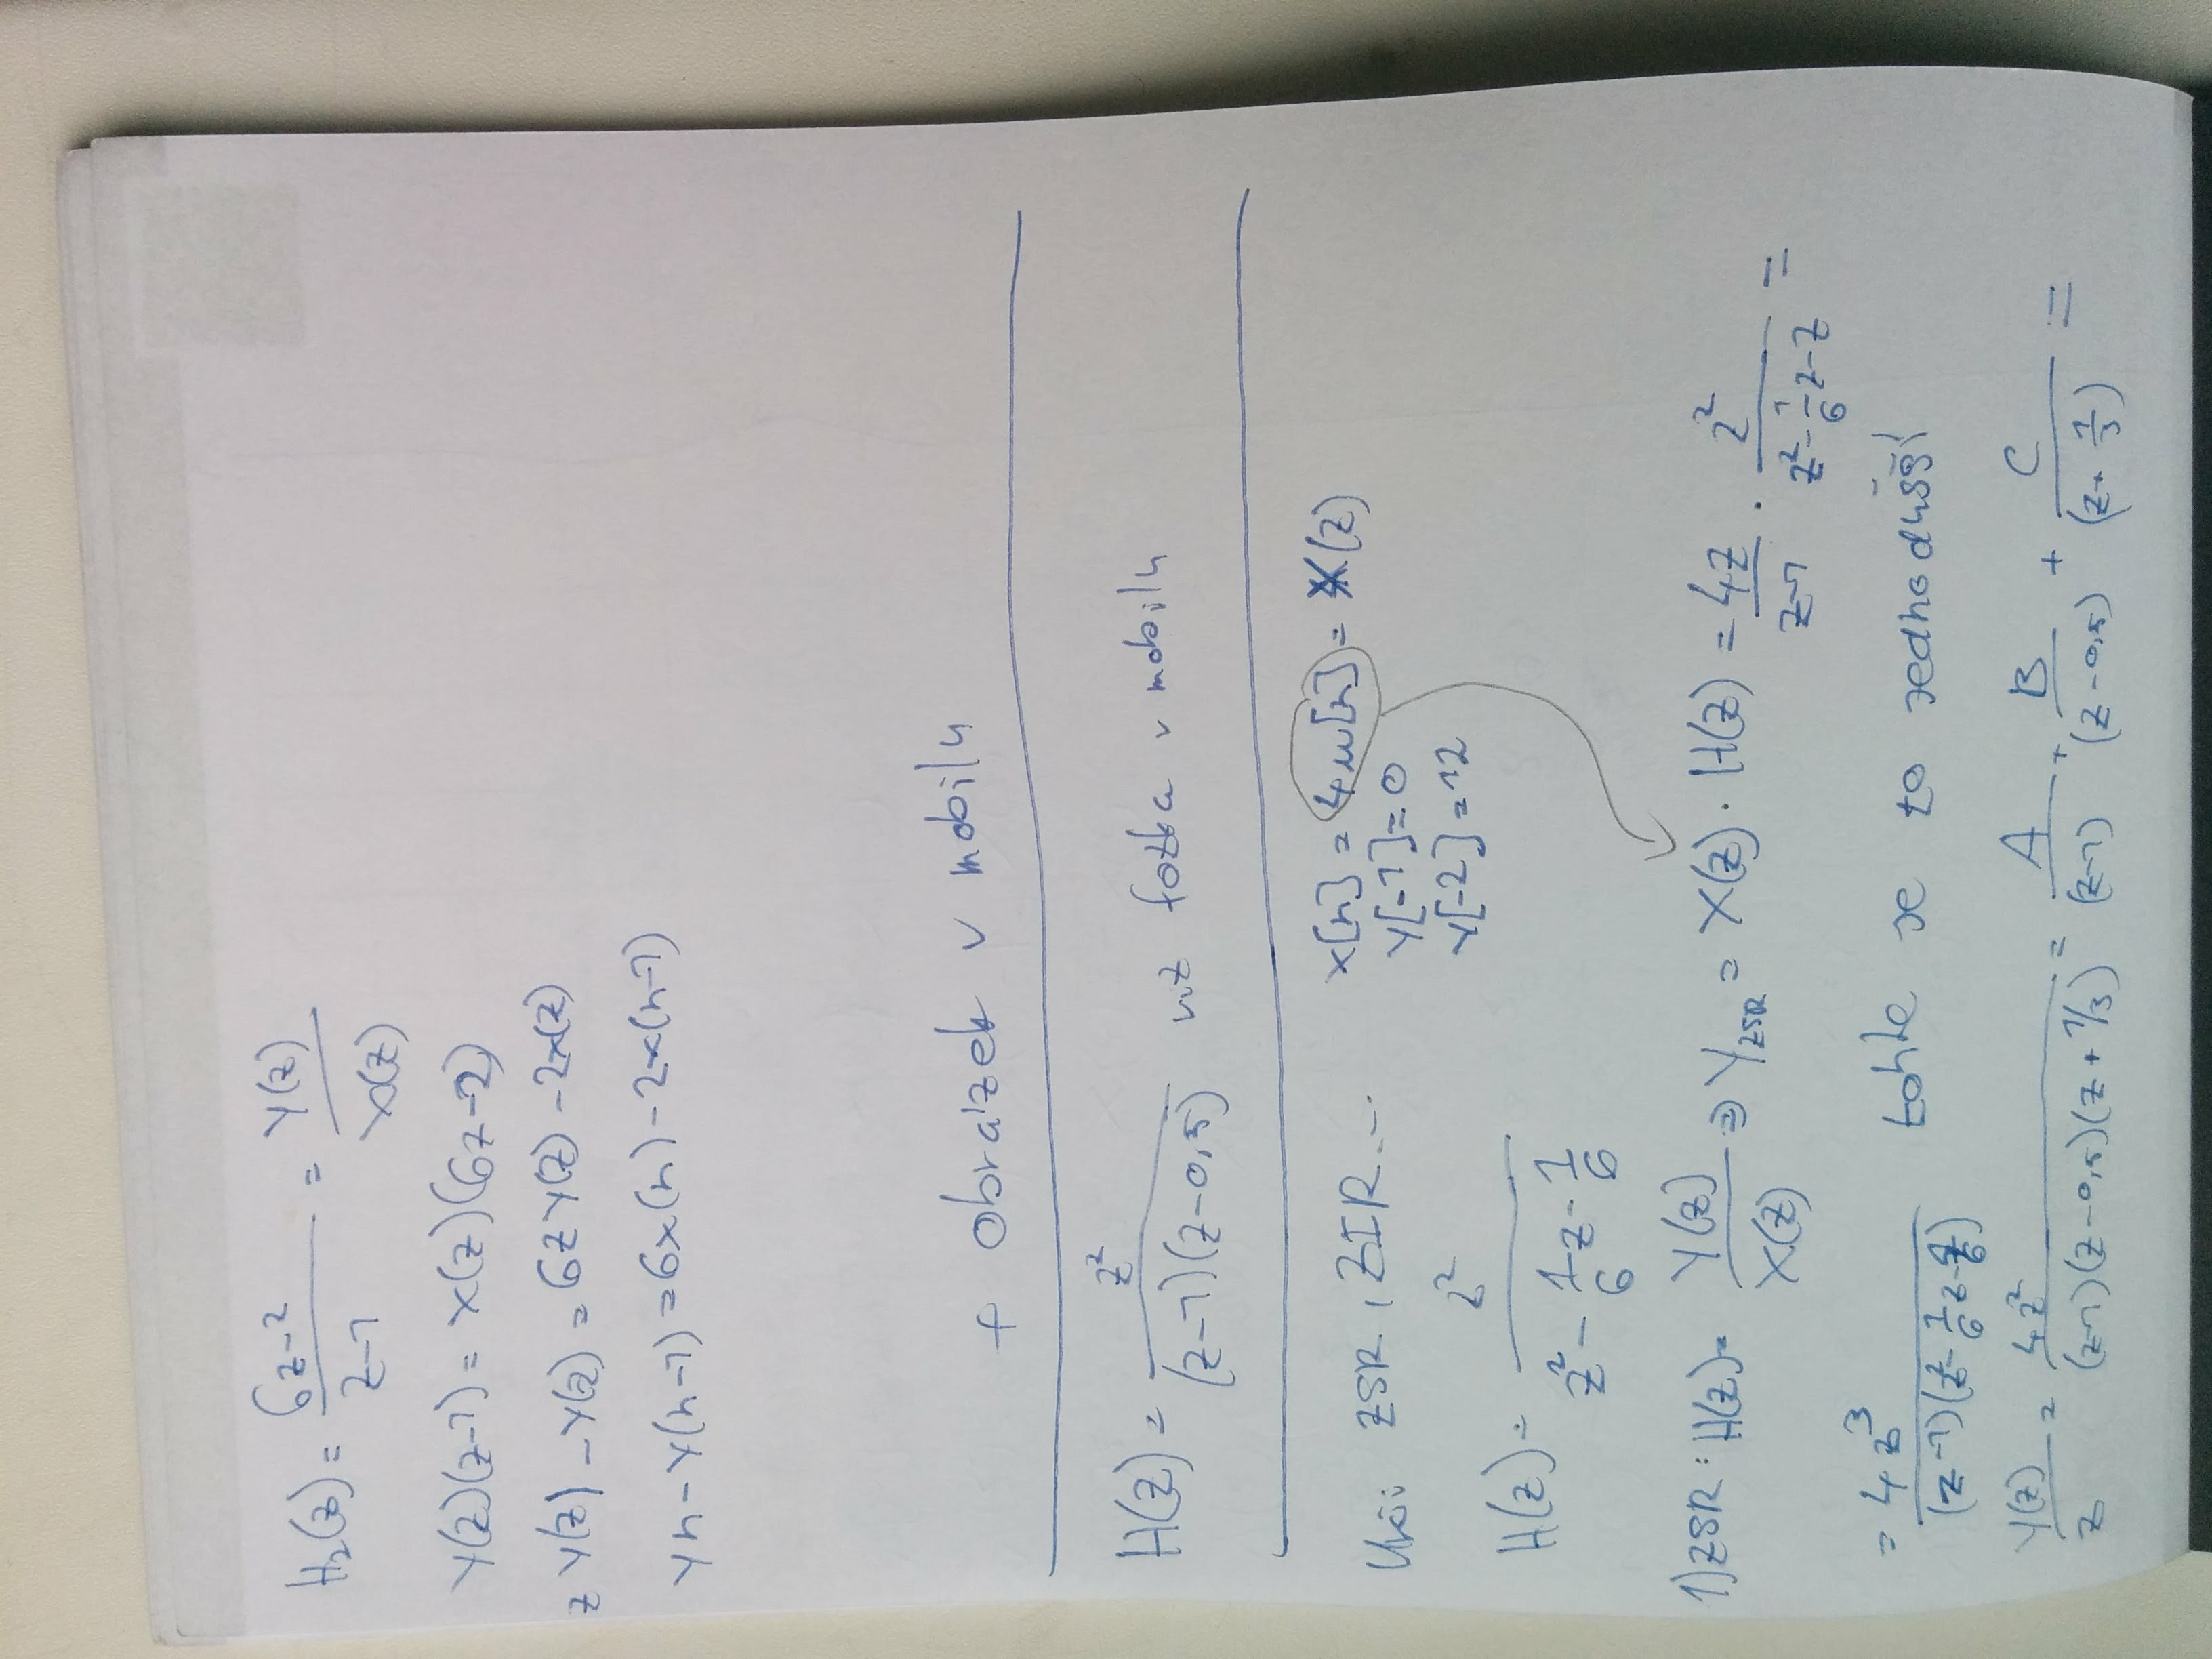 H₂(z) = (6z-2)/(z-1) = Y(z)/X(z)
Y(z)(z-1) = X(z)(6z-2)
z Y(z) - Y(z) = 6z Y(z) - 2x(z)
yn - y(n-1) = 6x(n) - 2x(n-1)
+ obrázek v mobilu
H(z) = z²/((z-1)(z-0,5)) viz fotka v mobilu
Úkol: ZSR, ZIR... x[n] = 4u[n] = X(z)
y[-1] = 0
y[-2] = 12
H(z) = z²/(z² - 1/6 z - 1/6)
1) ZSR: H(z) = Y(z)/X(z) ⇒ Y_ZSR = X(z) · H(z) = 4z/(z-1) · z²/(z² - 1/6 z - 1/6) =
= 4z³/((z-1)(z² - 1/6 z - 1/6)) tohle je to jednodušší
Y(z)/z = 4z²/((z-1)(z-0,5)(z+1/3)) = A/(z-1) + B/(z-0,5) + C/(z+1/3) =